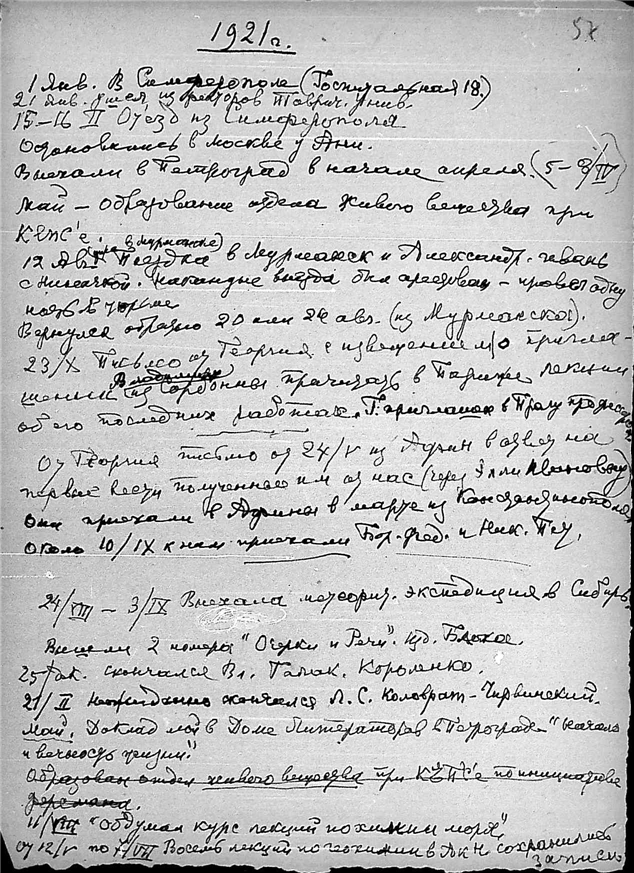 57
1921 г.
1 Янв. В Симферополе (Госпитальная 18.)
21 янв. ушел из ректоров Таврич. унив.
15–16 II Отъезд из Симферополя
Остановились в Москве у Ани.
Выехали в Петроград в начале апреля. (5–8/IV)
Май – образование отдела живого вещества при
КЕПС'е.
(уже в Мурманске)
12 Авг. Поездка в Мурманск и Александр. гавань
с Ниночкой. Накануне въезда был арестован – провел одну
ночь в тюрьме
Вернулся обратно 20 или 24 авг. (из Мурманска).
23/X Письмо от Георгия с извещением о пригла-
Владимира
шении из Сорбонны прочитать в Париже лекции
об его последних работах. Г. приглашон в Прагу
От Георгия письмо от 24/V из Афин в ответ на
первые вести полученные им от нас (через Элли Ивановну)
Они приехали в Афины в марте из Константинополя
Около 10/IX к нам приехали Бор. Фед. и Ник. Пет.
24/VIII – 3/IX Выехала метеорит. экспедиция в Сибирь.
Вышли 2 номера "Очерки и Речи". Изд.
25 Дек. скончался Вл. Галак. Короленко.
21/II неожиданно скончался Л. С. Коловрат-Червинский.
Май. Доклад мой в Доме Литераторов в Петрограде – "Начало
и вечность жизни".
Образован отдел живого вещества при КЕПС'е по инициативе
11/VIII "Обдумал курс лекций по химии моря",
от 12/V по 7/VII Восемь лекций по геохимии в АКН сохранились
записи